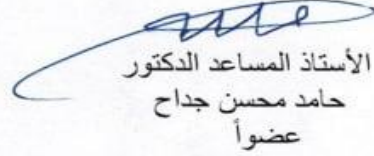 الأستاذ المساعد الدكتور
حامد محسن جداح
عضواً